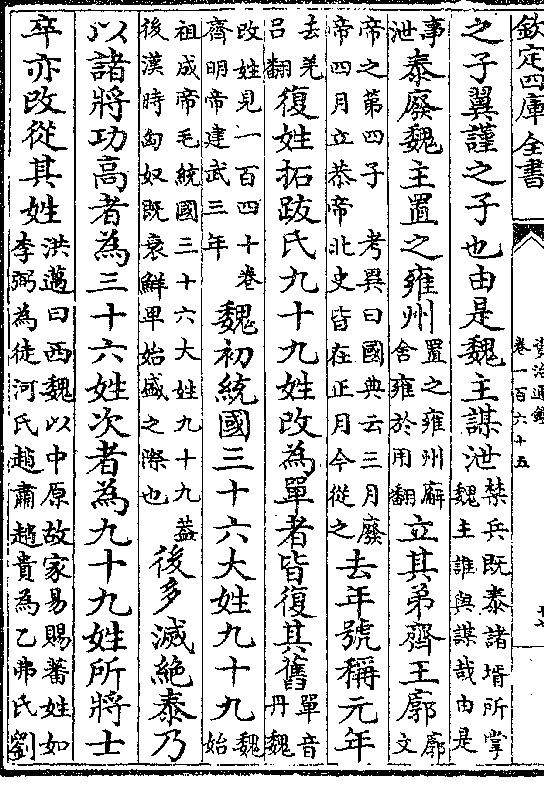 欽定四庫全書
資治通鑑
卷一百六十五
之子翼謹之子也由是魏主謀泄禁兵既泰諸壻所掌魏主誰與謀哉由是
事泄泰廢魏主置之雍州置之雍州廨舍雍於用翻立其弟齊王廓廓文
帝之第四子考異曰國典云三月廢帝四月立恭帝北史皆在正月今從之去年號稱元年
去羌吕翻復姓拓跋氏九十九姓改為單者皆復其舊單音丹魏
改姓見一百四十卷齊明帝建武三年魏初統國三十六大姓九十九魏始
祖成帝毛統國三十六大姓九十九蓋後漢時匈奴既衰鮮卑始盛之際也後多滅絶泰乃
以諸將功高者為三十六姓次者為九十九姓所將士
卒亦改從其姓洪邁曰西魏以中原故家易賜蕃姓如李弼為徒河氏趙肅趙貴為乙弗氏劉